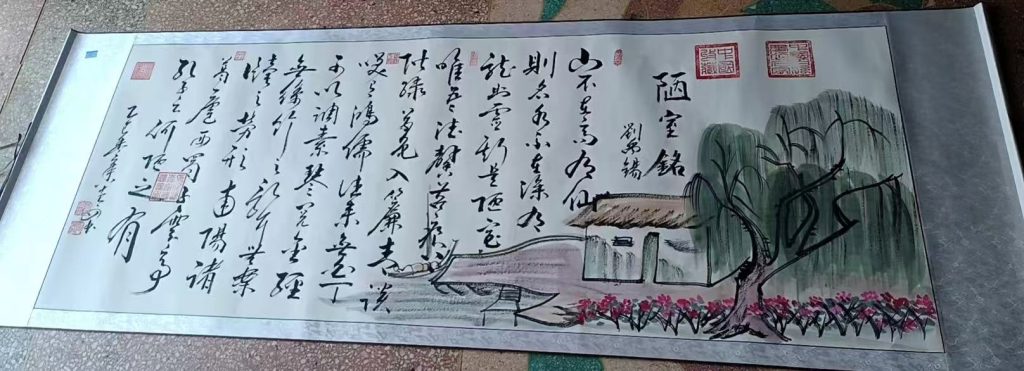 陋室銘
劉禹錫
山不在高有仙
則名水不在深有
龍則靈斯是陋室
唯吾德馨苔痕上
階綠草色入簾青談
笑有鴻儒往來無白丁
可以調素琴閱金經
無絲竹之亂耳無案
牘之勞形南陽諸
葛廬西蜀子雲亭
孔子云何陋之有
乙巳年